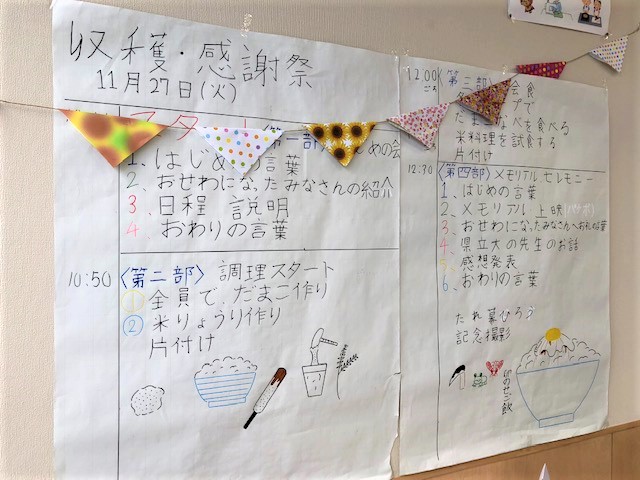 収穫・感謝祭
11月27日(火)
スタート
〈第一部〉
めの会
1、はじめの言葉
2、おせわになったみなさんの紹介
3、日程 説明
4、おわりの言葉
10:50 〈第二部〉 調理スタート
① 全員で、だまこ作り
② 米りょうり作り
片付け
12:00 〈第三部〉会食
プで
なべを食べる
米料理を試食する
片付け
12:30 〈第四部〉メモリアルセレモニー
1、はじめの言葉
2、メモリアル上映
3、おせわになったみなさんへお礼の言葉
4、県立大の先生のお話
5、感想発表
6、おわりの言葉
たれ幕ひろう
記念撮影
いのせご飯